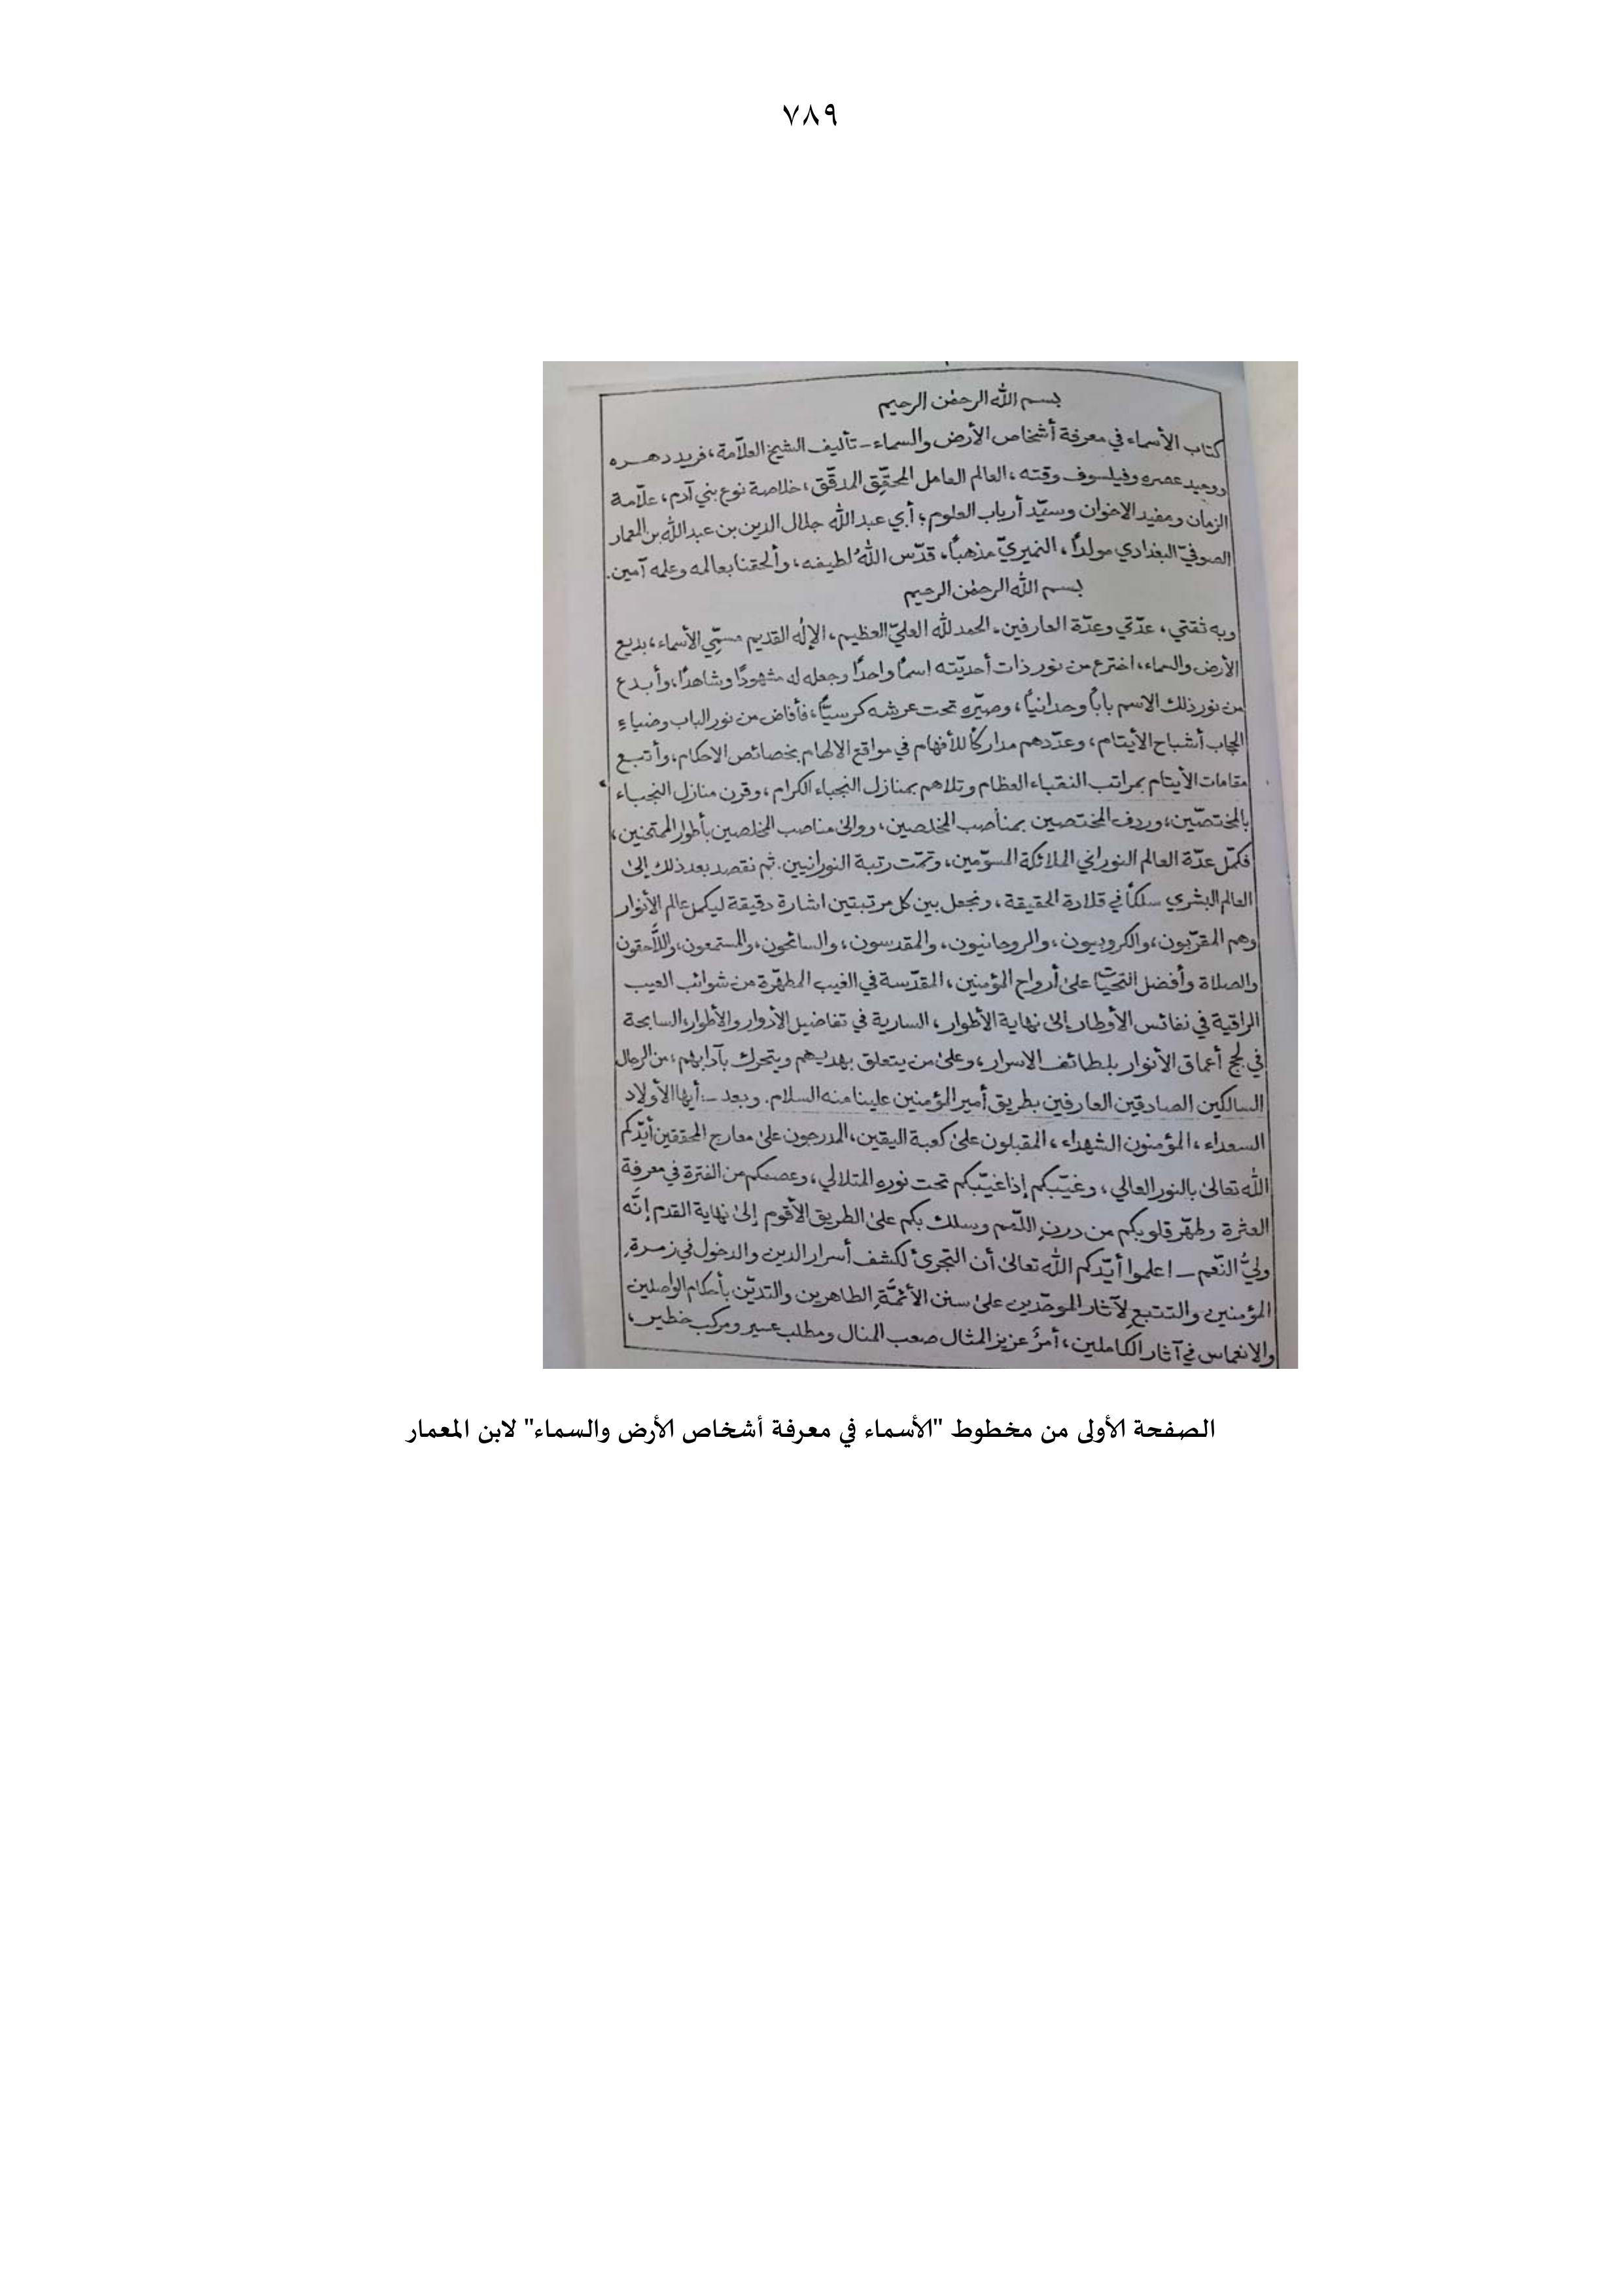 ٧٨٩
بسم الله الرحمٰن الرحيم
كتاب الأسماء في معرفة أشخاص الأرض والسماء - تأليف الشيخ العلّامة، فريد دهره
ووحيد عصره وفيلسوف وقته، العالم العامل المحقّق المدقّق، خلاصة نوع بني آدم، علّامة
الزمان ومفيد الاخوان وسيّد أرباب العلوم؛ أبي عبدالله جلال الدين بن عبدالله بن المعمار
الصوفيّ البغدادي مولداً، النميريّ مذهباً، قدّس اللهُ لطيفه، وألحقنا بعالمه وعلمه آمين.
بسم الله الرحمٰن الرحيم
وبه ثقتي، عدّتي وعدّة العارفين. الحمد لله العليّ العظيم، الإلٰه القديم مسمّي الأسماء، بديع
الأرض والسماء، اخترع من نور ذات أحديّته اسماً واحداً وجعله له مشهوداً وشاهداً، وأبدع
من نور ذلك الاسم باباً وحدانياً، وصيّره تحت عرشه كرسيّاً، فأفاض من نور الباب وضياء
الحجاب أشباح الأيتام، وعدّدهم مداركاً للأفهام في مواقع الالهام بخصائص الاحكام، وأتبع
مقامات الأيتام بمراتب النقباء العظام وتلاهم بمنازل النجباء الكرام، وقرن منازل النجباء
بالمختصّين، وردف المختصين بمناصب المخلصين، ووالىٰ مناصب المخلصين بأطوار الممتحنين،
فكمّل عدّة العالم النوراني الملائكة المسوّمين، وتمّت رتبة النورانيين. ثم نقصد بعد ذلك إلىٰ
العالم البشري سلكاً في قلادة الحقيقة، ونجعل بين كل مرتبتين اشارة دقيقة ليكمل عالم الأنوار
وهم المقرّبون، والكروبيون، والروحانيون، والمقدسون، والسائحون، والمستمعون، واللّاحقون
والصلاة وأفضل التحيات علىٰ أرواح المؤمنين، المقدّسة في الغيب المطهّرة من شوائب العيب
الراقية في نفائس الأوطار إلىٰ نهاية الأطوار، السارية في تفاضيل الأدوار والأطوار، السابحة
في لجج أعماق الأنوار بلطائف الاسرار، وعلىٰ من يتعلق بهديهم ويتحرك بآدابهم، من الرجال
السالكين الصادقين العارفين بطريق أمير المؤمنين علينا منه السلام. وبعد -: أيها الأولاد
السعداء، المؤمنون الشهداء، المقبلون علىٰ كعبة اليقين، المدرجون علىٰ معارج المحققين أيّدكم
الله تعالىٰ بالنور العالي، وغيّبكم إذا غيّبكم تحت نوره المتلالي، وعصمكم من الفترة في معرفة
العثرة وطهّر قلوبكم من درنِ اللّمم وسلك بكم علىٰ الطريق الأقوم إلىٰ نهاية القدم إنّه
وليُّ النّعم - اعلموا أيّدكم الله تعالىٰ أن التجرىٔ لكشف أسرار الدين والدخول في زمرةِ
المؤمنين والتتبع لآثار الموحّدين علىٰ سنن الأئمّة الطاهرين والتديّن بأحكام الواصلين
والانغماس في آثار الكاملين، أمرٌ عزيز المثال صعب المنال ومطلب عسير ومركب خطير،
الصفحة الأولى من مخطوط "الأسماء في معرفة أشخاص الأرض والسماء" لابن المعمار